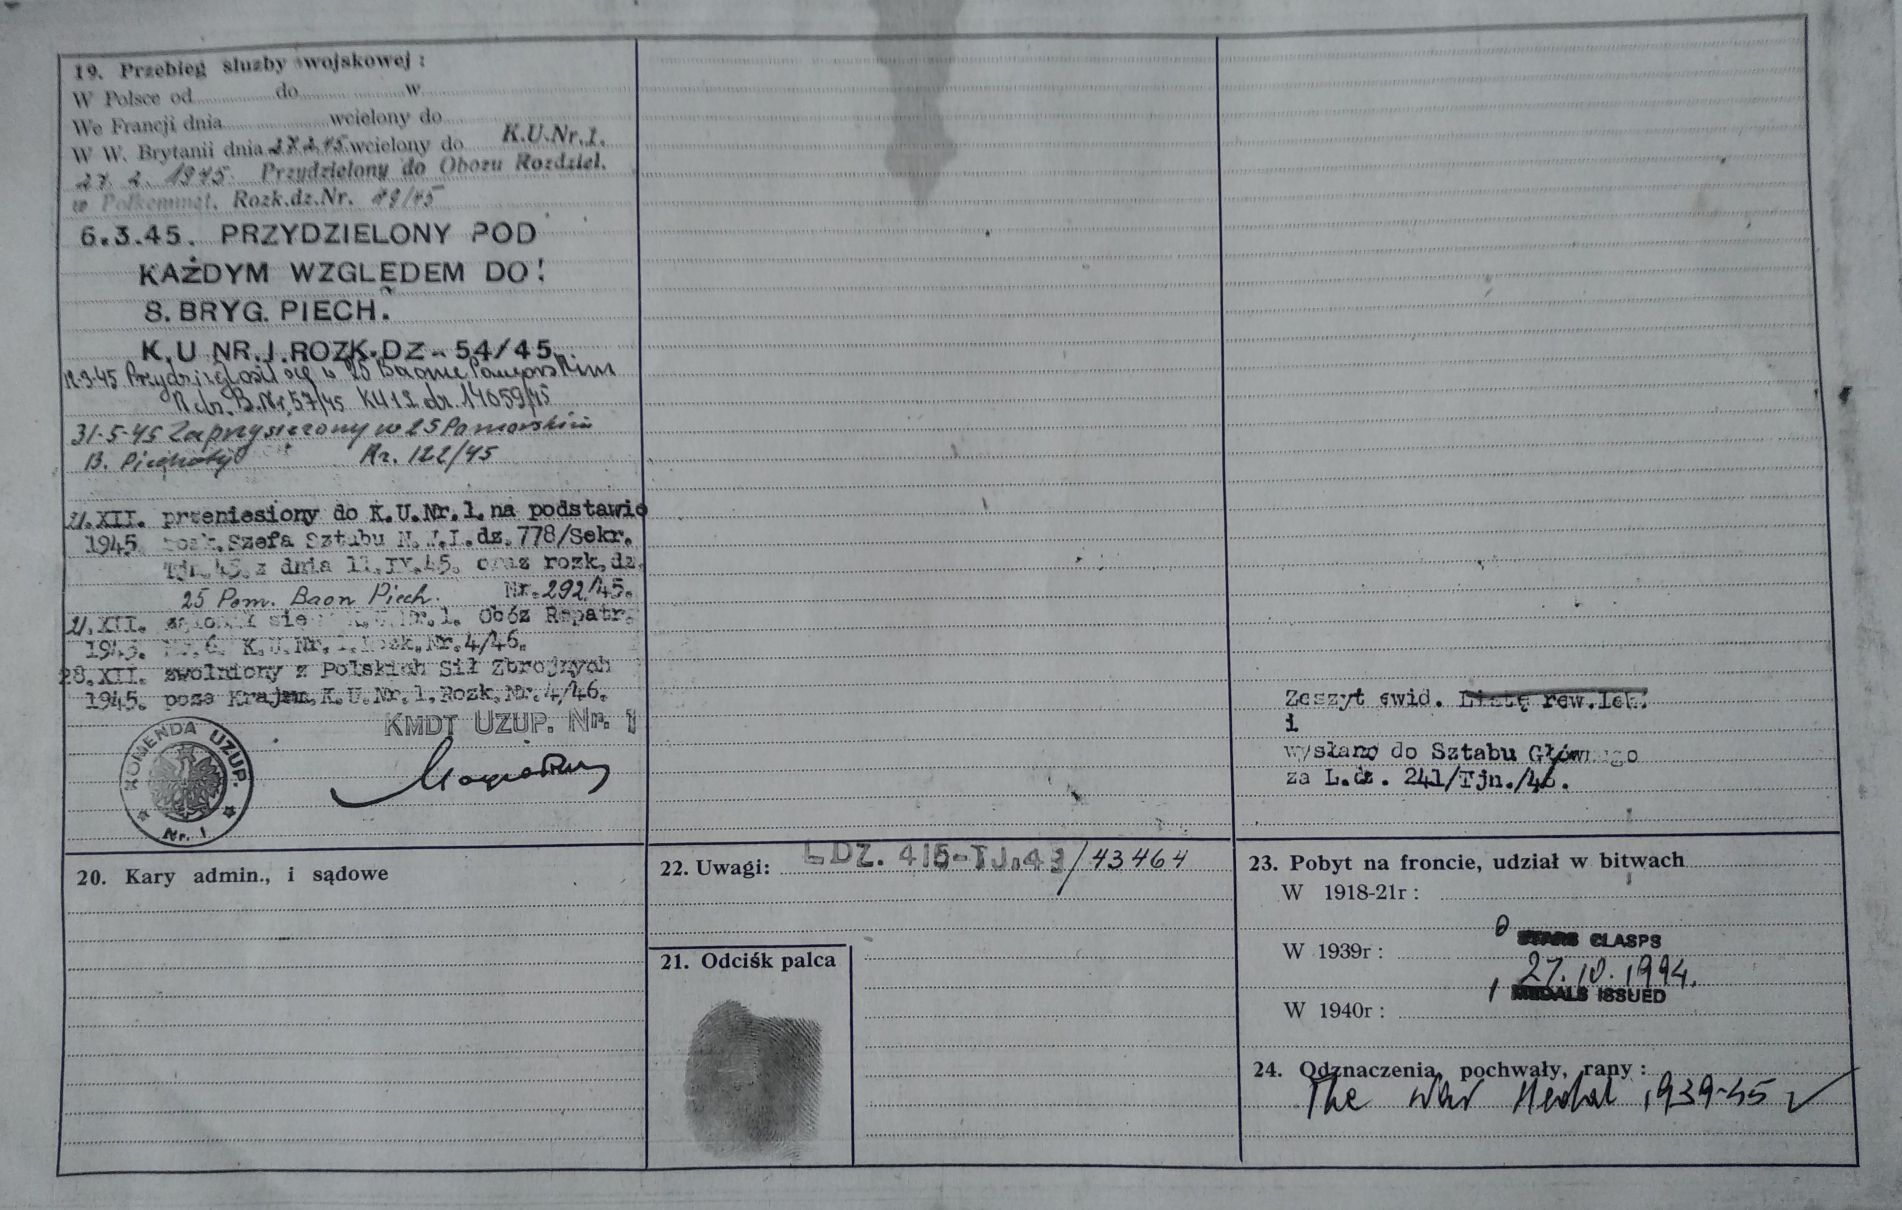 19. Przebieg służby wojskowej :
W Polsce od do w
We Francji dnia wcielony do
W W. Brytanii dnia 27.2.45 wcielony do K.U.Nr.1.
27. 2. 1945. Przydzielony do Obozu Rozdziel.
w Polkemmet. Rozk.dz.Nr. 49/45
6.3.45. PRZYDZIELONY POD
KAŻDYM WZGLĘDEM DO!
8. BRYG. PIECH.
K.U NR.I.ROZK.DZ- 54/45
12-3-45 Przydz. i zgłosił się w 25 Baonie Pomorskim
R.dz. B.Nr. 57/45 KU12 dz. 14059/45
31-5-45 Zaprzysiężony w 25 Pomorskim
B. Piechoty Rz. 122/45
21.XII. przeniesiony do K.U.Nr.1. na podstawie
1945 rozk. Szefa Sztabu N. .I.dz. 778/Sekr.
Tjn.45. z dnia 11.IV.45. oraz rozk.dz.
25 Pom. Baon Piech. Nr.292/45.
21.XII. zgłosił się K.U.Nr.1. Obóz Repatr.
1945. Nr.6. K.U.Nr.1.Rozk.Nr.4/46.
28.XII. zwolniony z Polskich Sił Zbrojnych
1945. poza Krajem.K.U.Nr.1.Rozk.Nr.4/46.
KMDT UZUP. Nr. 1
KOMENDA UZUP.
Nr. 1
Zeszyt ewid. Listę rew.lek.
i
wysłano do Sztabu Głównego
za L.dz. 241/Tjn./46.
20. Kary admin., i sądowe
22. Uwagi: LDZ. 415-TJ.43/43464
21. Odciśk palca
23. Pobyt na froncie, udział w bitwach
W 1918-21r :
W 1939r :
0 STARS CLASPS
27.10.1994.
1 MEDALS ISSUED
W 1940r :
24. Odznaczenia, pochwały, rany :
The War Medal 1939-45 ✓